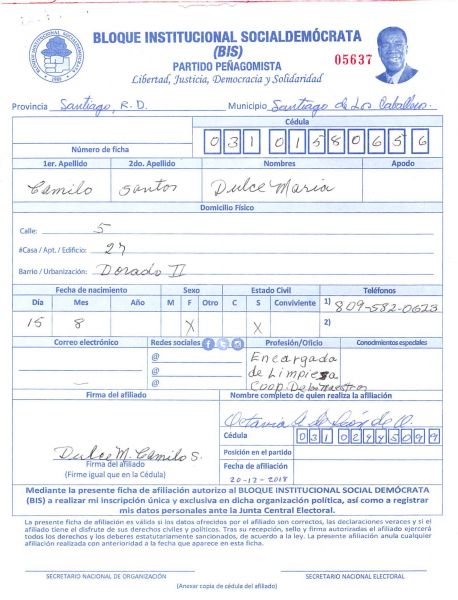 BLOQUE INSTITUCIONAL SOCIALDEMÓCRATA
(BIS)
PARTIDO PEÑAGOMISTA
05637
Libertad, Justicia, Democracia y Solidaridad
Provincia Santiago, R.D. Municipio Santiago de Los Caballeros.
Cédula
Número de ficha 031 0158065 6
1er. Apellido 2do. Apellido Nombres Apodo
Camilo Santos Dulce Maria
Domicilio Físico
Calle: 5
#Casa / Apt. / Edificio: 27
Barrio / Urbanización: Dorado II
Fecha de nacimiento Sexo Estado Civil Teléfonos
Día Mes Año M F Otro C S Conviviente 1) 809-582-0623
15 8 X X 2)
Correo electrónico Redes sociales Profesión/Oficio Conocimientos especiales
@ Encargada
@ de Limpiesa
@ Coop. De los Maestros
Firma del afiliado Nombre completo de quien realiza la afiliación
Octavia A. de León de O.
Cédula
Dulce M. Camilo S. Posición en el partido
Firma del afiliado Fecha de afiliación
(Firme igual que en la Cédula) 20-12-2018
Mediante la presente ficha de afiliación autorizo al BLOQUE INSTITUCIONAL SOCIAL DEMÓCRATA
(BIS) a realizar mi inscripción única y exclusiva en dicha organización política, así como a registrar
mis datos personales ante la Junta Central Electoral.
La presente ficha de afiliación es válida si los datos ofrecidos por el afiliado son correctos, las declaraciones veraces y si el
afiliado tiene el disfrute de sus derechos civiles y políticos. Tras su recepción, sello y firma autorizadas el afiliado ejercerá
todos los derechos y los deberes estatutariamente sancionados, de acuerdo a la ley. La presente afiliación anula cualquier
afiliación realizada con anterioridad a la fecha que aparece en esta ficha.
SECRETARIO NACIONAL DE ORGANIZACIÓN SECRETARIO NACIONAL ELECTORAL
(Anexar copia de cédula del afiliado)